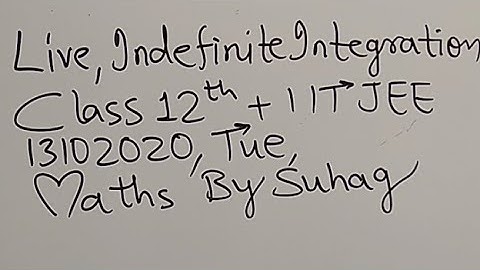 Live, Indefinite Integration
Class 12th + IIT JEE
13102020, Tue,
Maths By Suhag